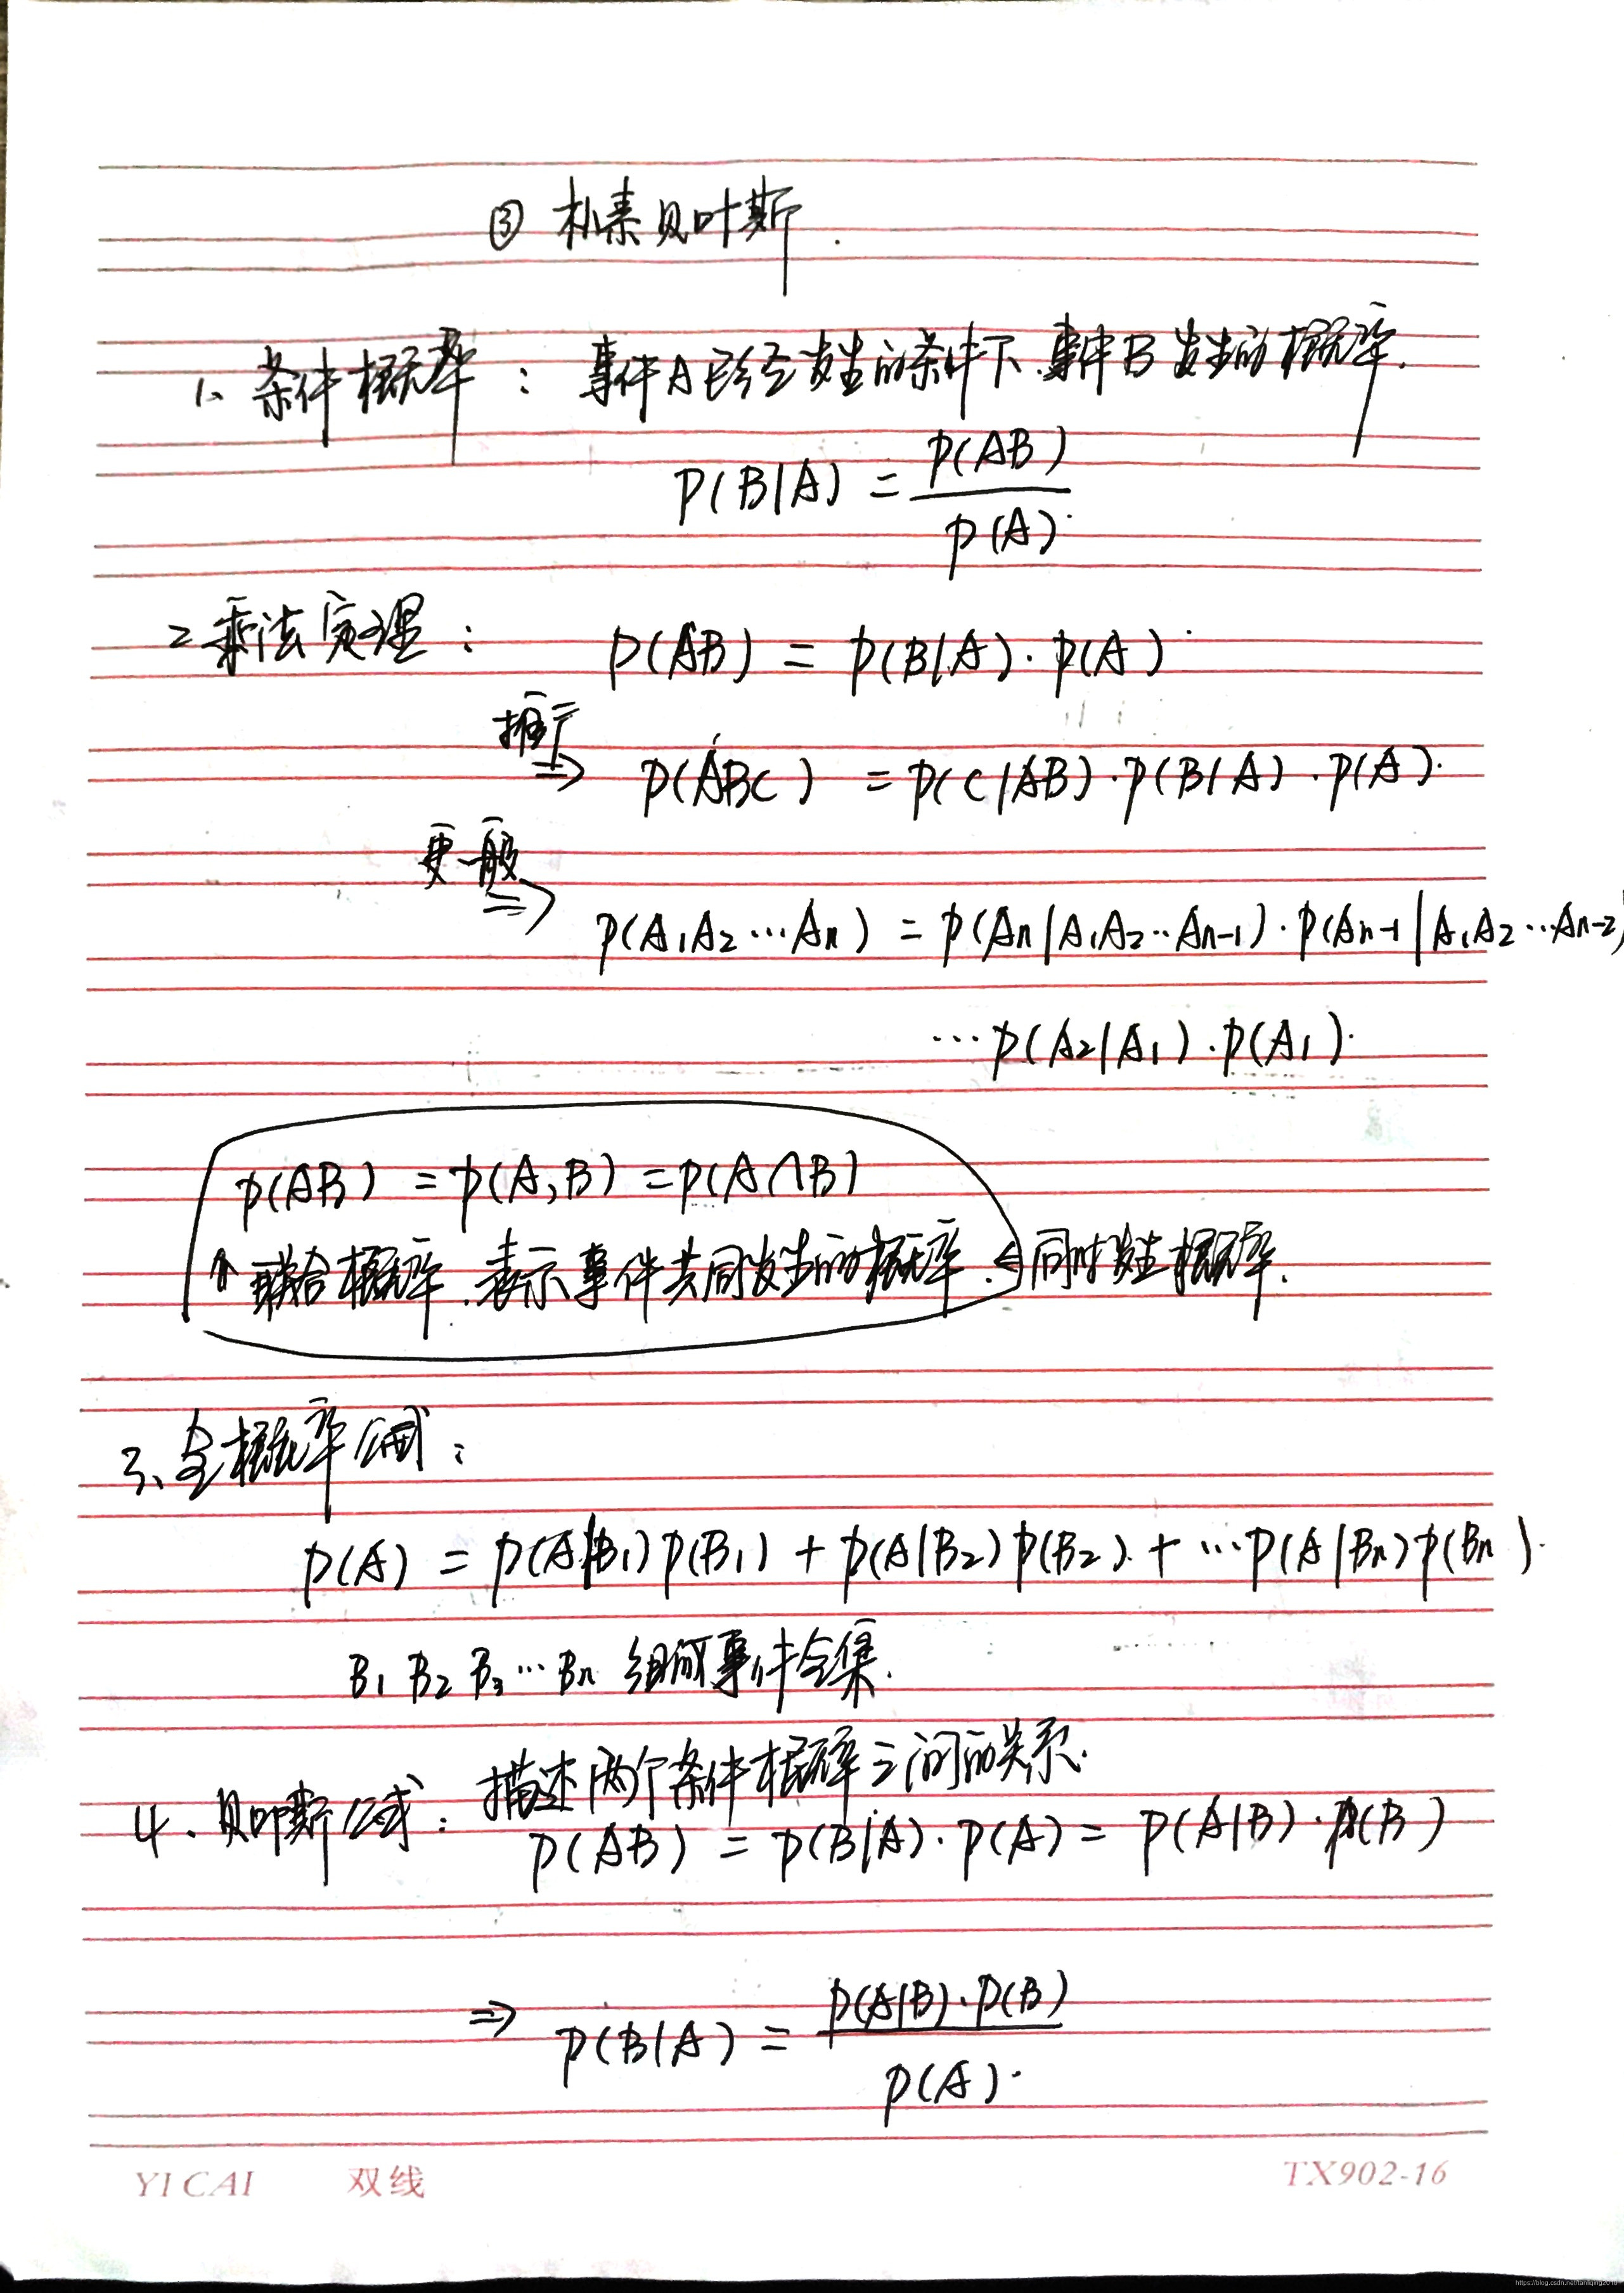 ③ 朴素贝叶斯.
1、条件概率: 事件A已经发生的条件下,事件B发生的概率.
P(B|A) = P(AB) / P(A).
2 乘法定理: P(AB) = P(B|A)·P(A)
推广 ⇒ P(ABC) = P(C|AB)·P(B|A)·P(A).
更一般 ⇒ P(A₁A₂…Aₙ) = P(Aₙ|A₁A₂…Aₙ₋₁)·P(Aₙ₋₁|A₁A₂…Aₙ₋₂)
…P(A₂|A₁)·P(A₁).
P(AB) = P(A,B) = P(A∩B)
↑ 联合概率.表示事件共同发生的概率. ← 同时发生概率.
3、全概率公式:
P(A) = P(A|B₁)P(B₁) + P(A|B₂)P(B₂) + …P(A|Bₙ)P(Bₙ).
B₁ B₂ B₃…Bₙ 组成事件全集.
4、贝叶斯公式: 描述两个条件概率之间的关系.
P(AB) = P(B|A)·P(A) = P(A|B)·P(B)
⇒ P(B|A) = P(A|B)·P(B) / P(A).
YI CAI 双线 TX902-16